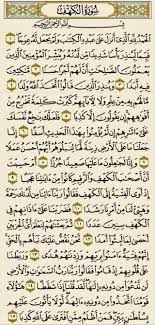 سُورَةُ الكَهْفِ
بِسْمِ اللَّهِ الرَّحْمَٰنِ الرَّحِيمِ
الْحَمْدُ لِلَّهِ الَّذِي أَنزَلَ عَلَىٰ عَبْدِهِ الْكِتَابَ وَلَمْ يَجْعَل لَّهُ عِوَجَا
قَيِّمًا لِّيُنذِرَ بَأْسًا شَدِيدًا مِّن لَّدُنْهُ وَيُبَشِّرَ الْمُؤْمِنِينَ الَّذِينَ
يَعْمَلُونَ الصَّالِحَاتِ أَنَّ لَهُمْ أَجْرًا حَسَنًا
مَّاكِثِينَ فِيهِ أَبَدًا وَيُنذِرَ الَّذِينَ قَالُوا اتَّخَذَ اللَّهُ وَلَدًا
مَّا لَهُم بِهِ مِنْ عِلْمٍ وَلَا لِآبَائِهِمْ كَبُرَتْ كَلِمَةً تَخْرُجُ مِنْ
أَفْوَاهِهِمْ إِن يَقُولُونَ إِلَّا كَذِبًا فَلَعَلَّكَ بَاخِعٌ نَّفْسَكَ
عَلَىٰ آثَارِهِمْ إِن لَّمْ يُؤْمِنُوا بِهَٰذَا الْحَدِيثِ أَسَفًا إِنَّا
جَعَلْنَا مَا عَلَى الْأَرْضِ زِينَةً لَّهَا لِنَبْلُوَهُمْ أَيُّهُمْ أَحْسَنُ عَمَلًا
وَإِنَّا لَجَاعِلُونَ مَا عَلَيْهَا صَعِيدًا جُرُزًا أَمْ حَسِبْتَ
أَنَّ أَصْحَابَ الْكَهْفِ وَالرَّقِيمِ كَانُوا مِنْ آيَاتِنَا عَجَبًا
إِذْ أَوَى الْفِتْيَةُ إِلَى الْكَهْفِ فَقَالُوا رَبَّنَا آتِنَا مِن لَّدُنكَ رَحْمَةً
وَهَيِّئْ لَنَا مِنْ أَمْرِنَا رَشَدًا فَضَرَبْنَا عَلَىٰ آذَانِهِمْ
فِي الْكَهْفِ سِنِينَ عَدَدًا ثُمَّ بَعَثْنَاهُمْ لِنَعْلَمَ أَيُّ الْحِزْبَيْنِ
أَحْصَىٰ لِمَا لَبِثُوا أَمَدًا نَّحْنُ نَقُصُّ عَلَيْكَ نَبَأَهُم بِالْحَقِّ
إِنَّهُمْ فِتْيَةٌ آمَنُوا بِرَبِّهِمْ وَزِدْنَاهُمْ هُدًى وَرَبَطْنَا
عَلَىٰ قُلُوبِهِمْ إِذْ قَامُوا فَقَالُوا رَبُّنَا رَبُّ السَّمَاوَاتِ وَالْأَرْضِ
لَن نَّدْعُوَ مِن دُونِهِ إِلَٰهًا لَّقَدْ قُلْنَا إِذًا شَطَطًا
هَٰؤُلَاءِ قَوْمُنَا اتَّخَذُوا مِن دُونِهِ آلِهَةً لَّوْلَا يَأْتُونَ عَلَيْهِم
بِسُلْطَانٍ بَيِّنٍ فَمَنْ أَظْلَمُ مِمَّنِ افْتَرَىٰ عَلَى اللَّهِ كَذِبًا